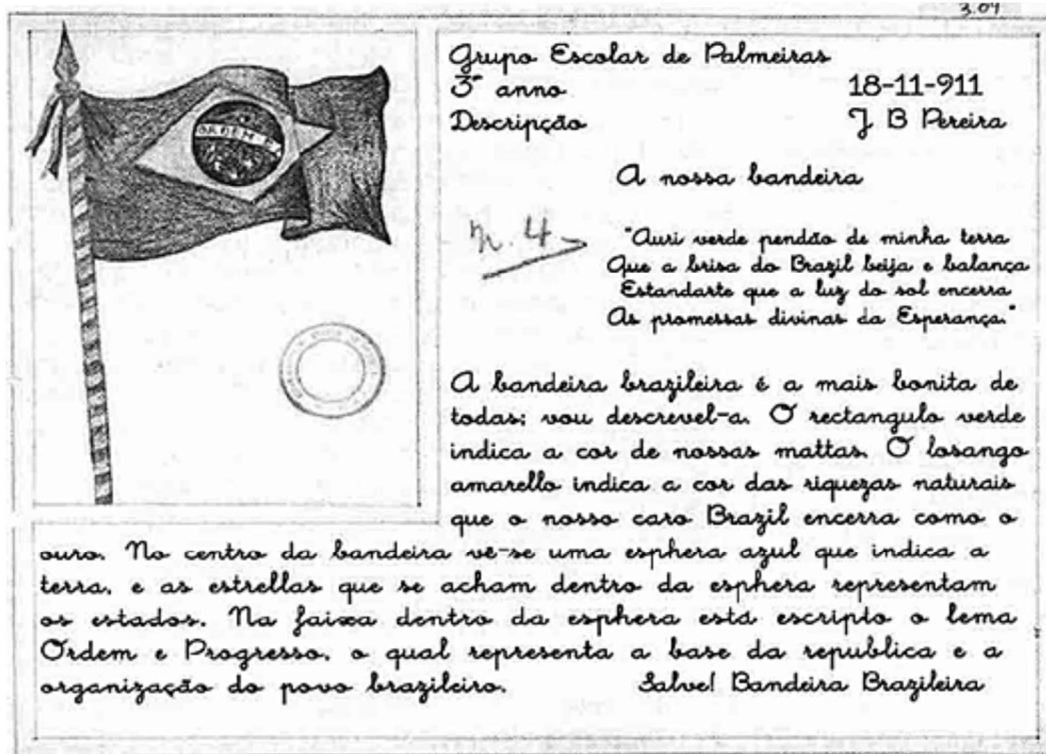 3.07
Grupo Escolar de Palmeiras
3º anno 18-11-911
Descripção J. B Pereira
A nossa bandeira
n. 4
"Auri verde pendão de minha terra
Que a brisa do Brazil beija e balança
Estandarte que a luz do sol encerra
As promessas divinas da Esperança."
ORDEM E
A bandeira brazileira é a mais bonita de
todas; vou descrevel-a. O rectangulo verde
indica a cor de nossas mattas. O losango
amarello indica a cor das riquezas naturais
que o nosso caro Brazil encerra como o
ouro. No centro da bandeira vê-se uma esphera azul que indica a
terra, e as estrellas que se acham dentro da esphera representam
os estados. Na faixa dentro da esphera está escripto o lema
Ordem e Progresso, o qual representa a base da republica e a
organização do povo brazileiro. Salve! Bandeira Brazileira